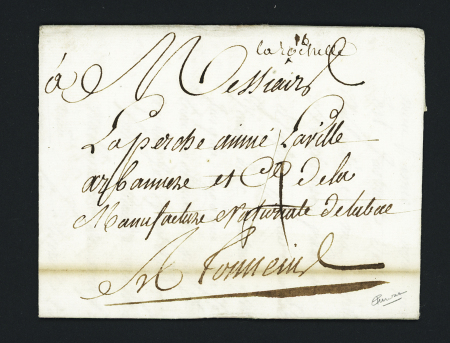 16
la rochelle
à Messieurs
Laperche ainné Laville
arbannere et Cie de la
Manufacture Nationale de tabac
A Tonneins